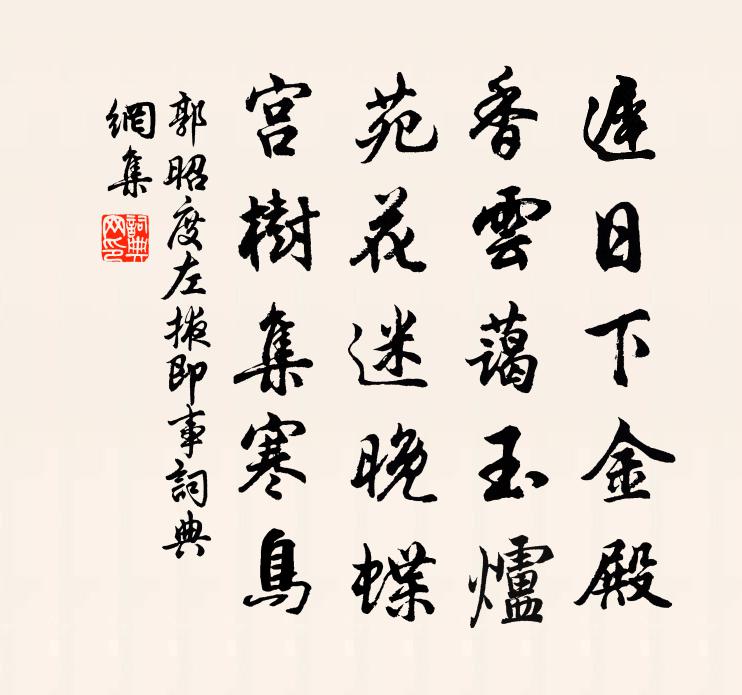 遲日下金殿
香雲藹玉爐
苑花迷晚蝶
宮樹集寒鳥
郭昭度左掖即事詞典
網集
詞典
网印